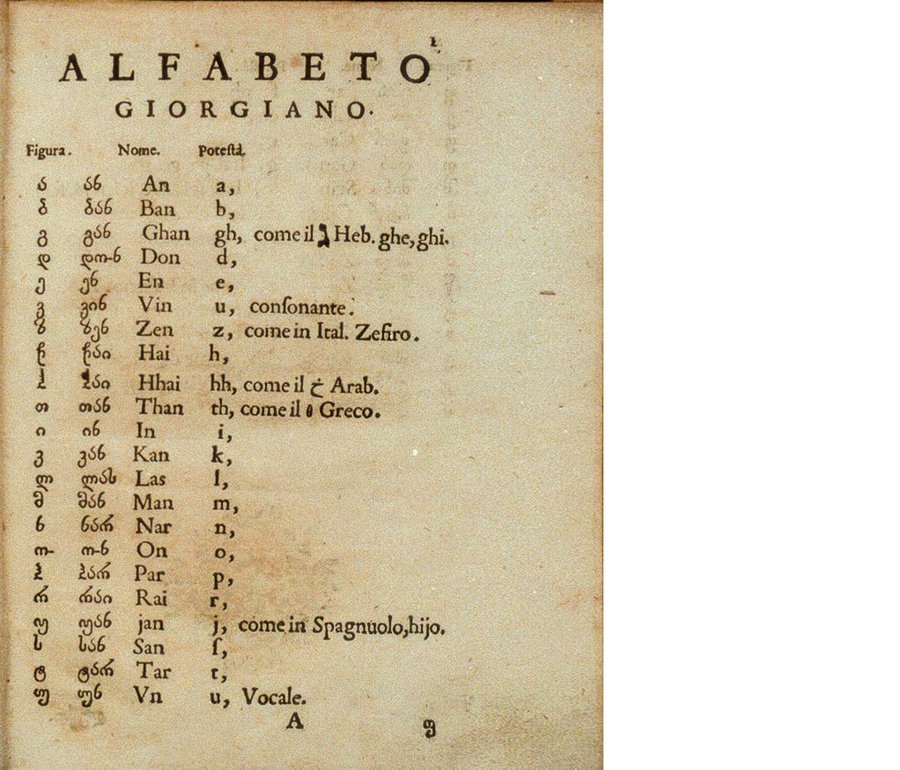 ALFABETO
GIORGIANO.
Figura. Nome. Potestà.
ა ან An a,
ბ ბან Ban b,
გ გან Ghan gh, come il ג Heb. ghe, ghi.
დ დონ Don d,
ე ენ En e,
ვ ვინ Vin u, conſonante.
ზ ზენ Zen z, come in Ital. Zefiro.
ჱ ჱაი Hai h,
Hhai hh, come il خ Arab.
თ თან Than th, come il θ Greco.
ი ინ In i,
კ კან Kan k,
ლ ლას Las l,
მ მან Man m,
ნ ნარ Nar n,
ო ონ On o,
პ პარ Par p,
რ რაი Rai r,
ჟ ჟან jan j, come in Spagnuolo, hijo.
ს სან San ſ,
ტ ტარ Tar t,
უ უნ Vn u, Vocale.
A ფ